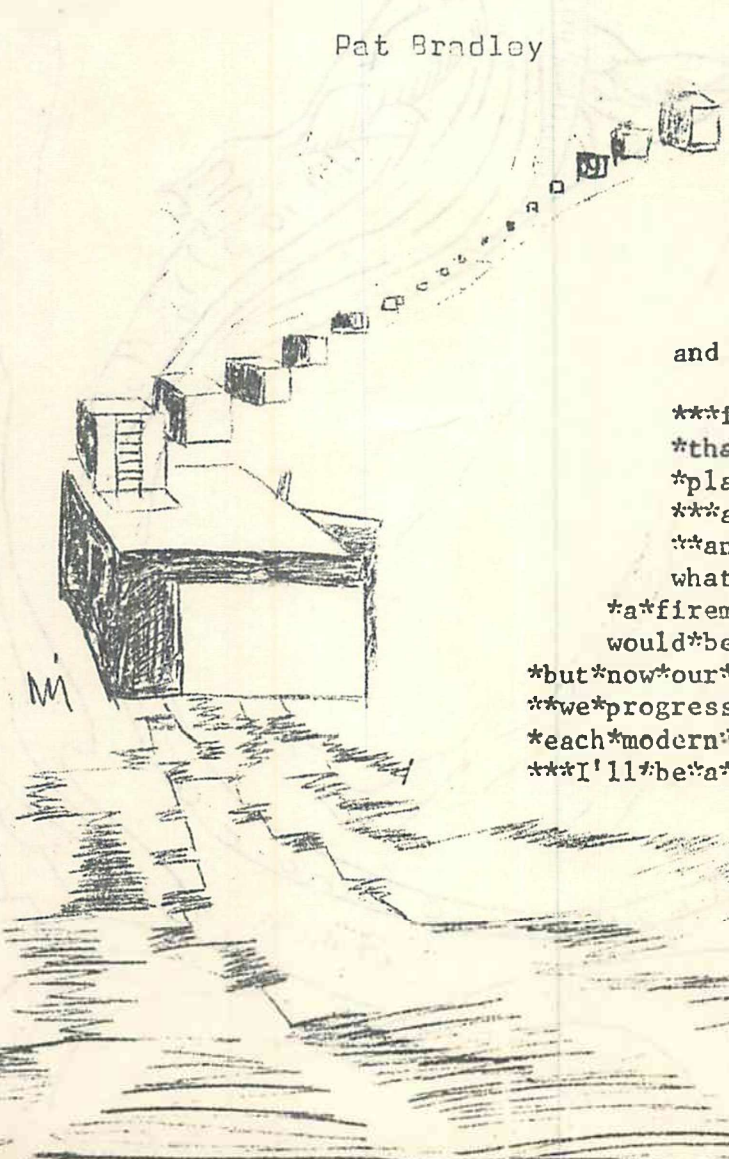 Pat Bradley
and
***f
*tha
*pla
***a
**an
what
*a*firem
would*be
*but*now*our*
**we*progress
*each*modern*
***I'll*be*a*